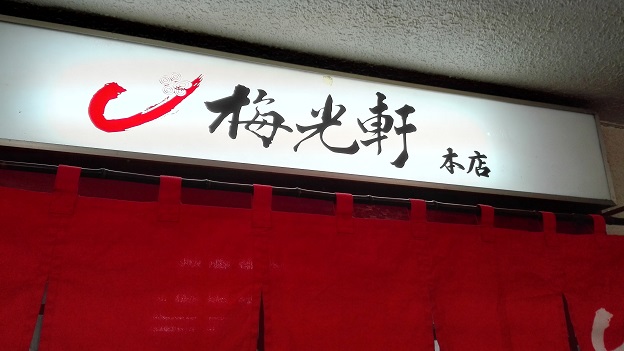 梅光軒 本店